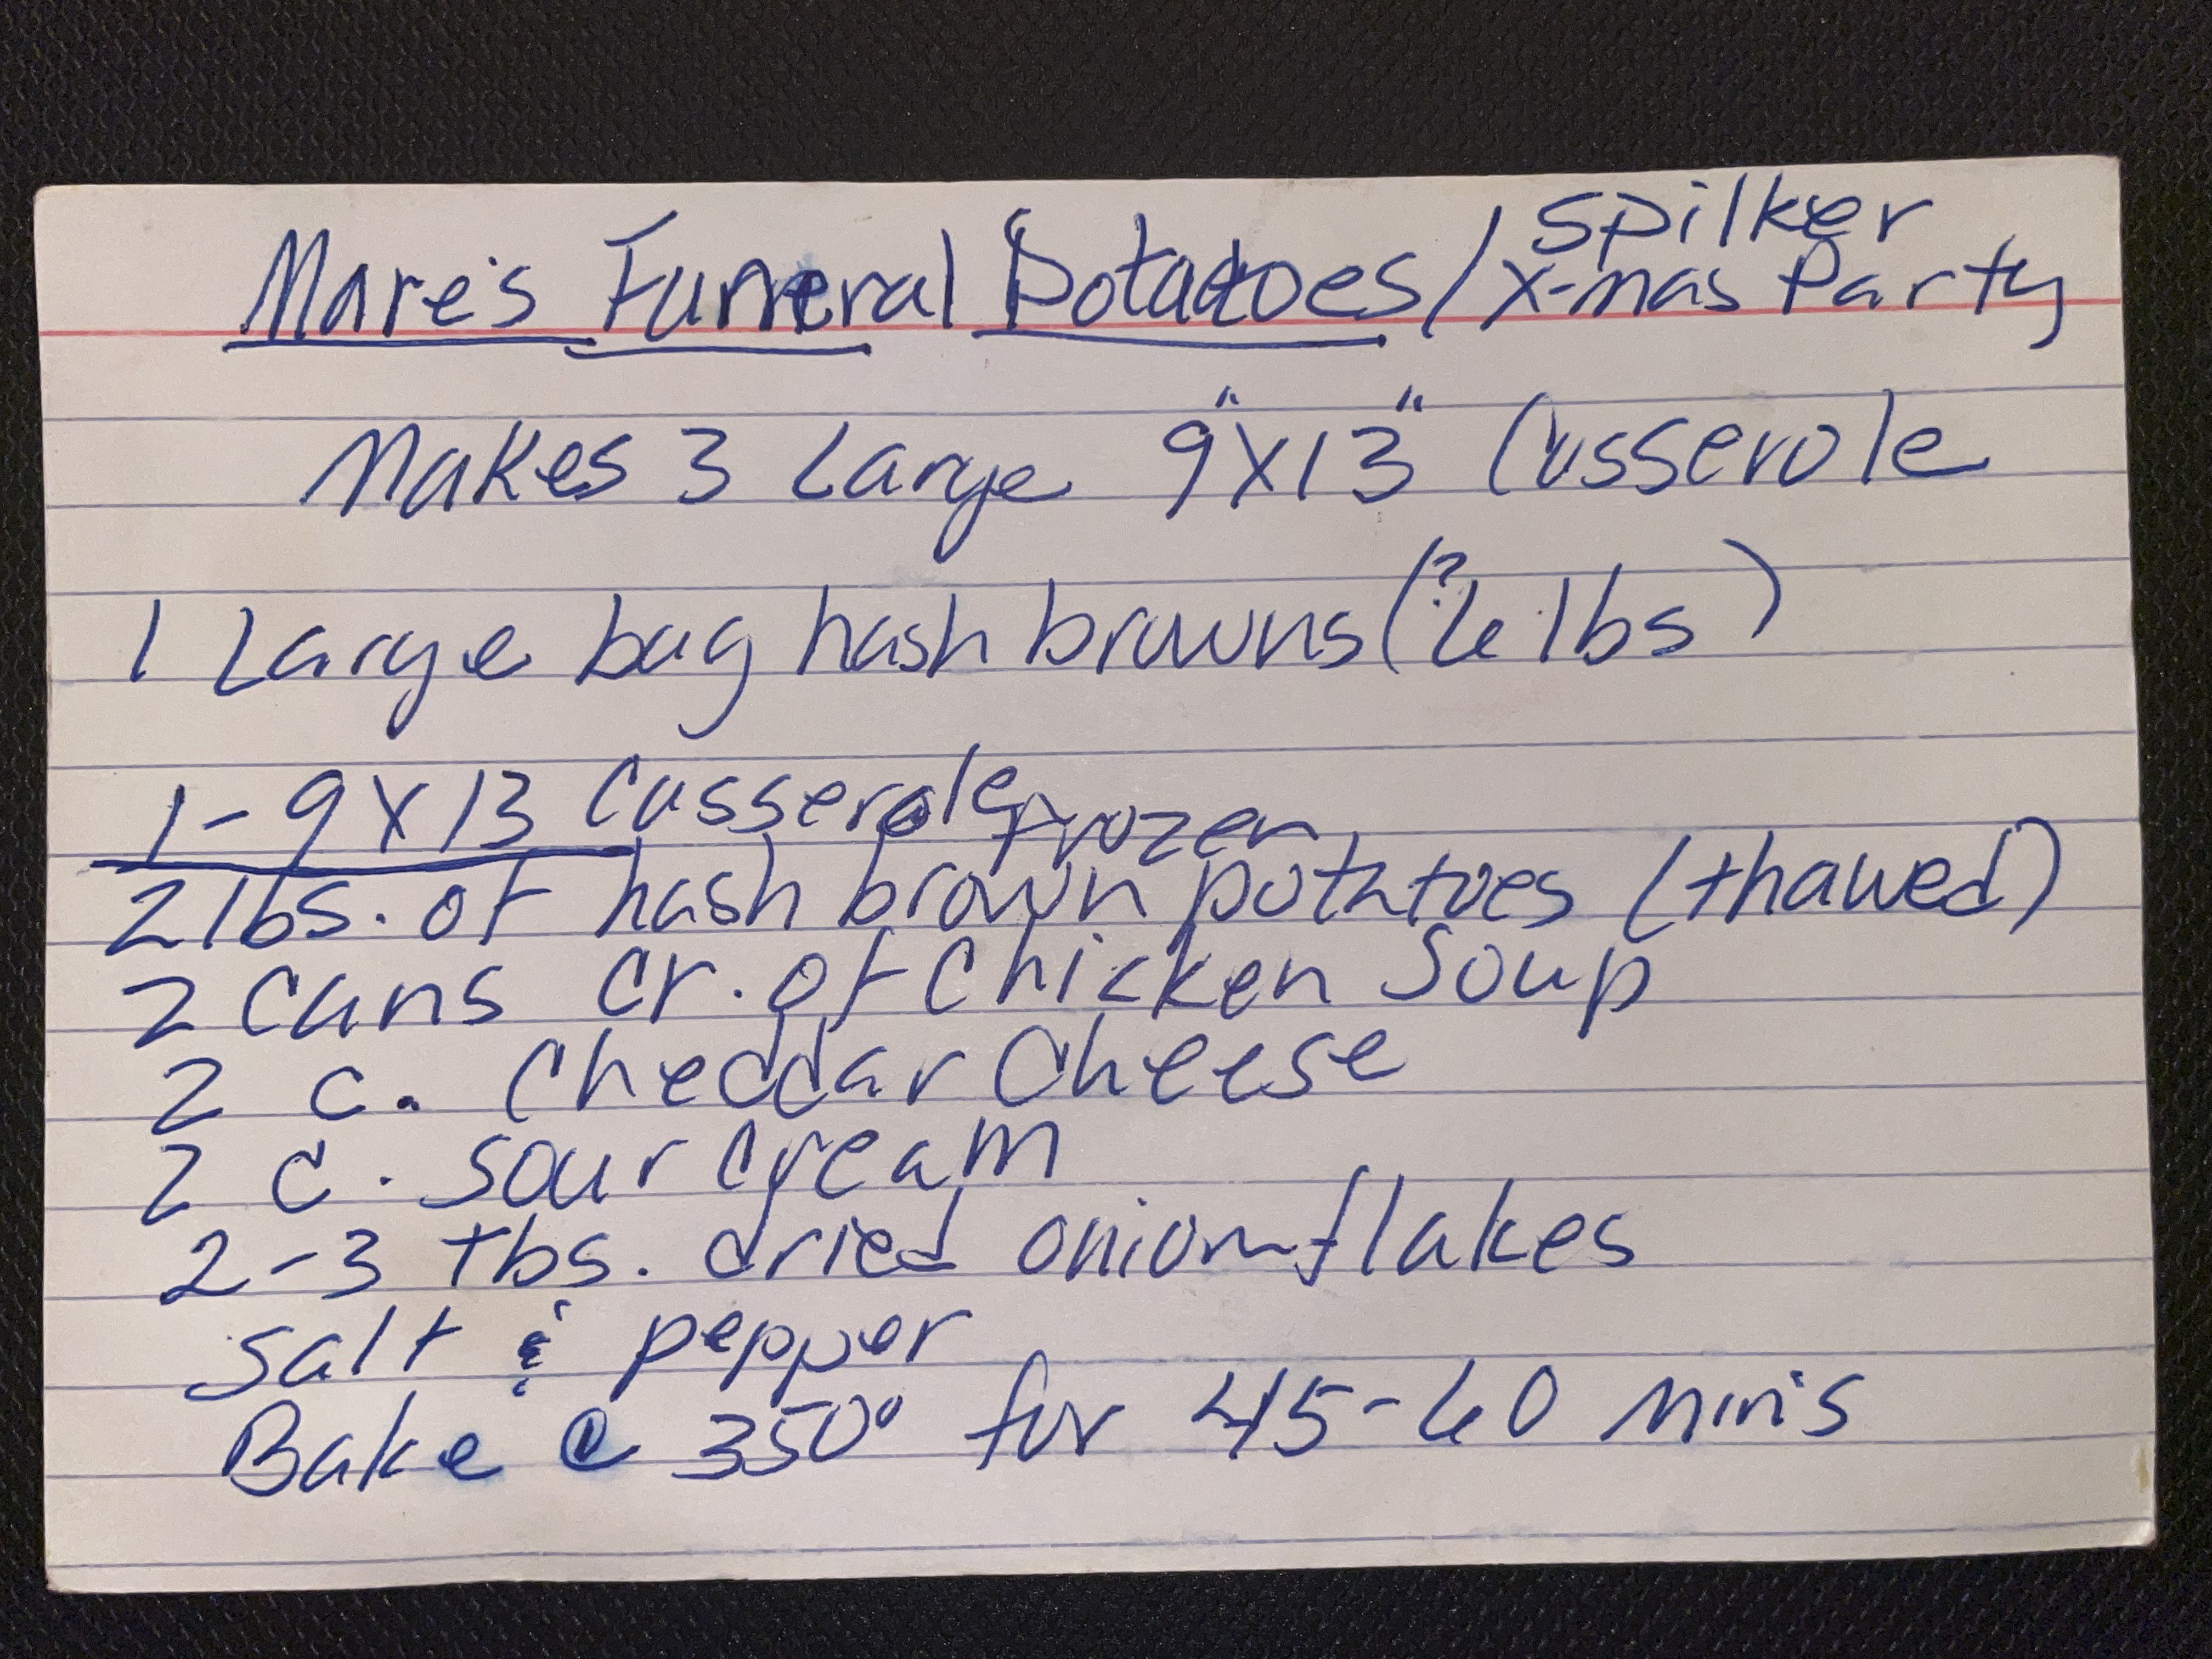 Mare's Funeral Potatoes / Spilker
X-mas Party
Makes 3 Large 9"x13" Casserole
1 Large bag hash browns (? 6 lbs)
1- 9 x 13 Casserole
frozen
2 lbs. of hash brown potatoes (thawed)
2 Cans Cr. of Chicken Soup
2 C. Cheddar Cheese
2 C. Sour Cream
2-3 tbs. dried onion flakes
Salt & pepper
Bake @ 350° for 45-60 mins